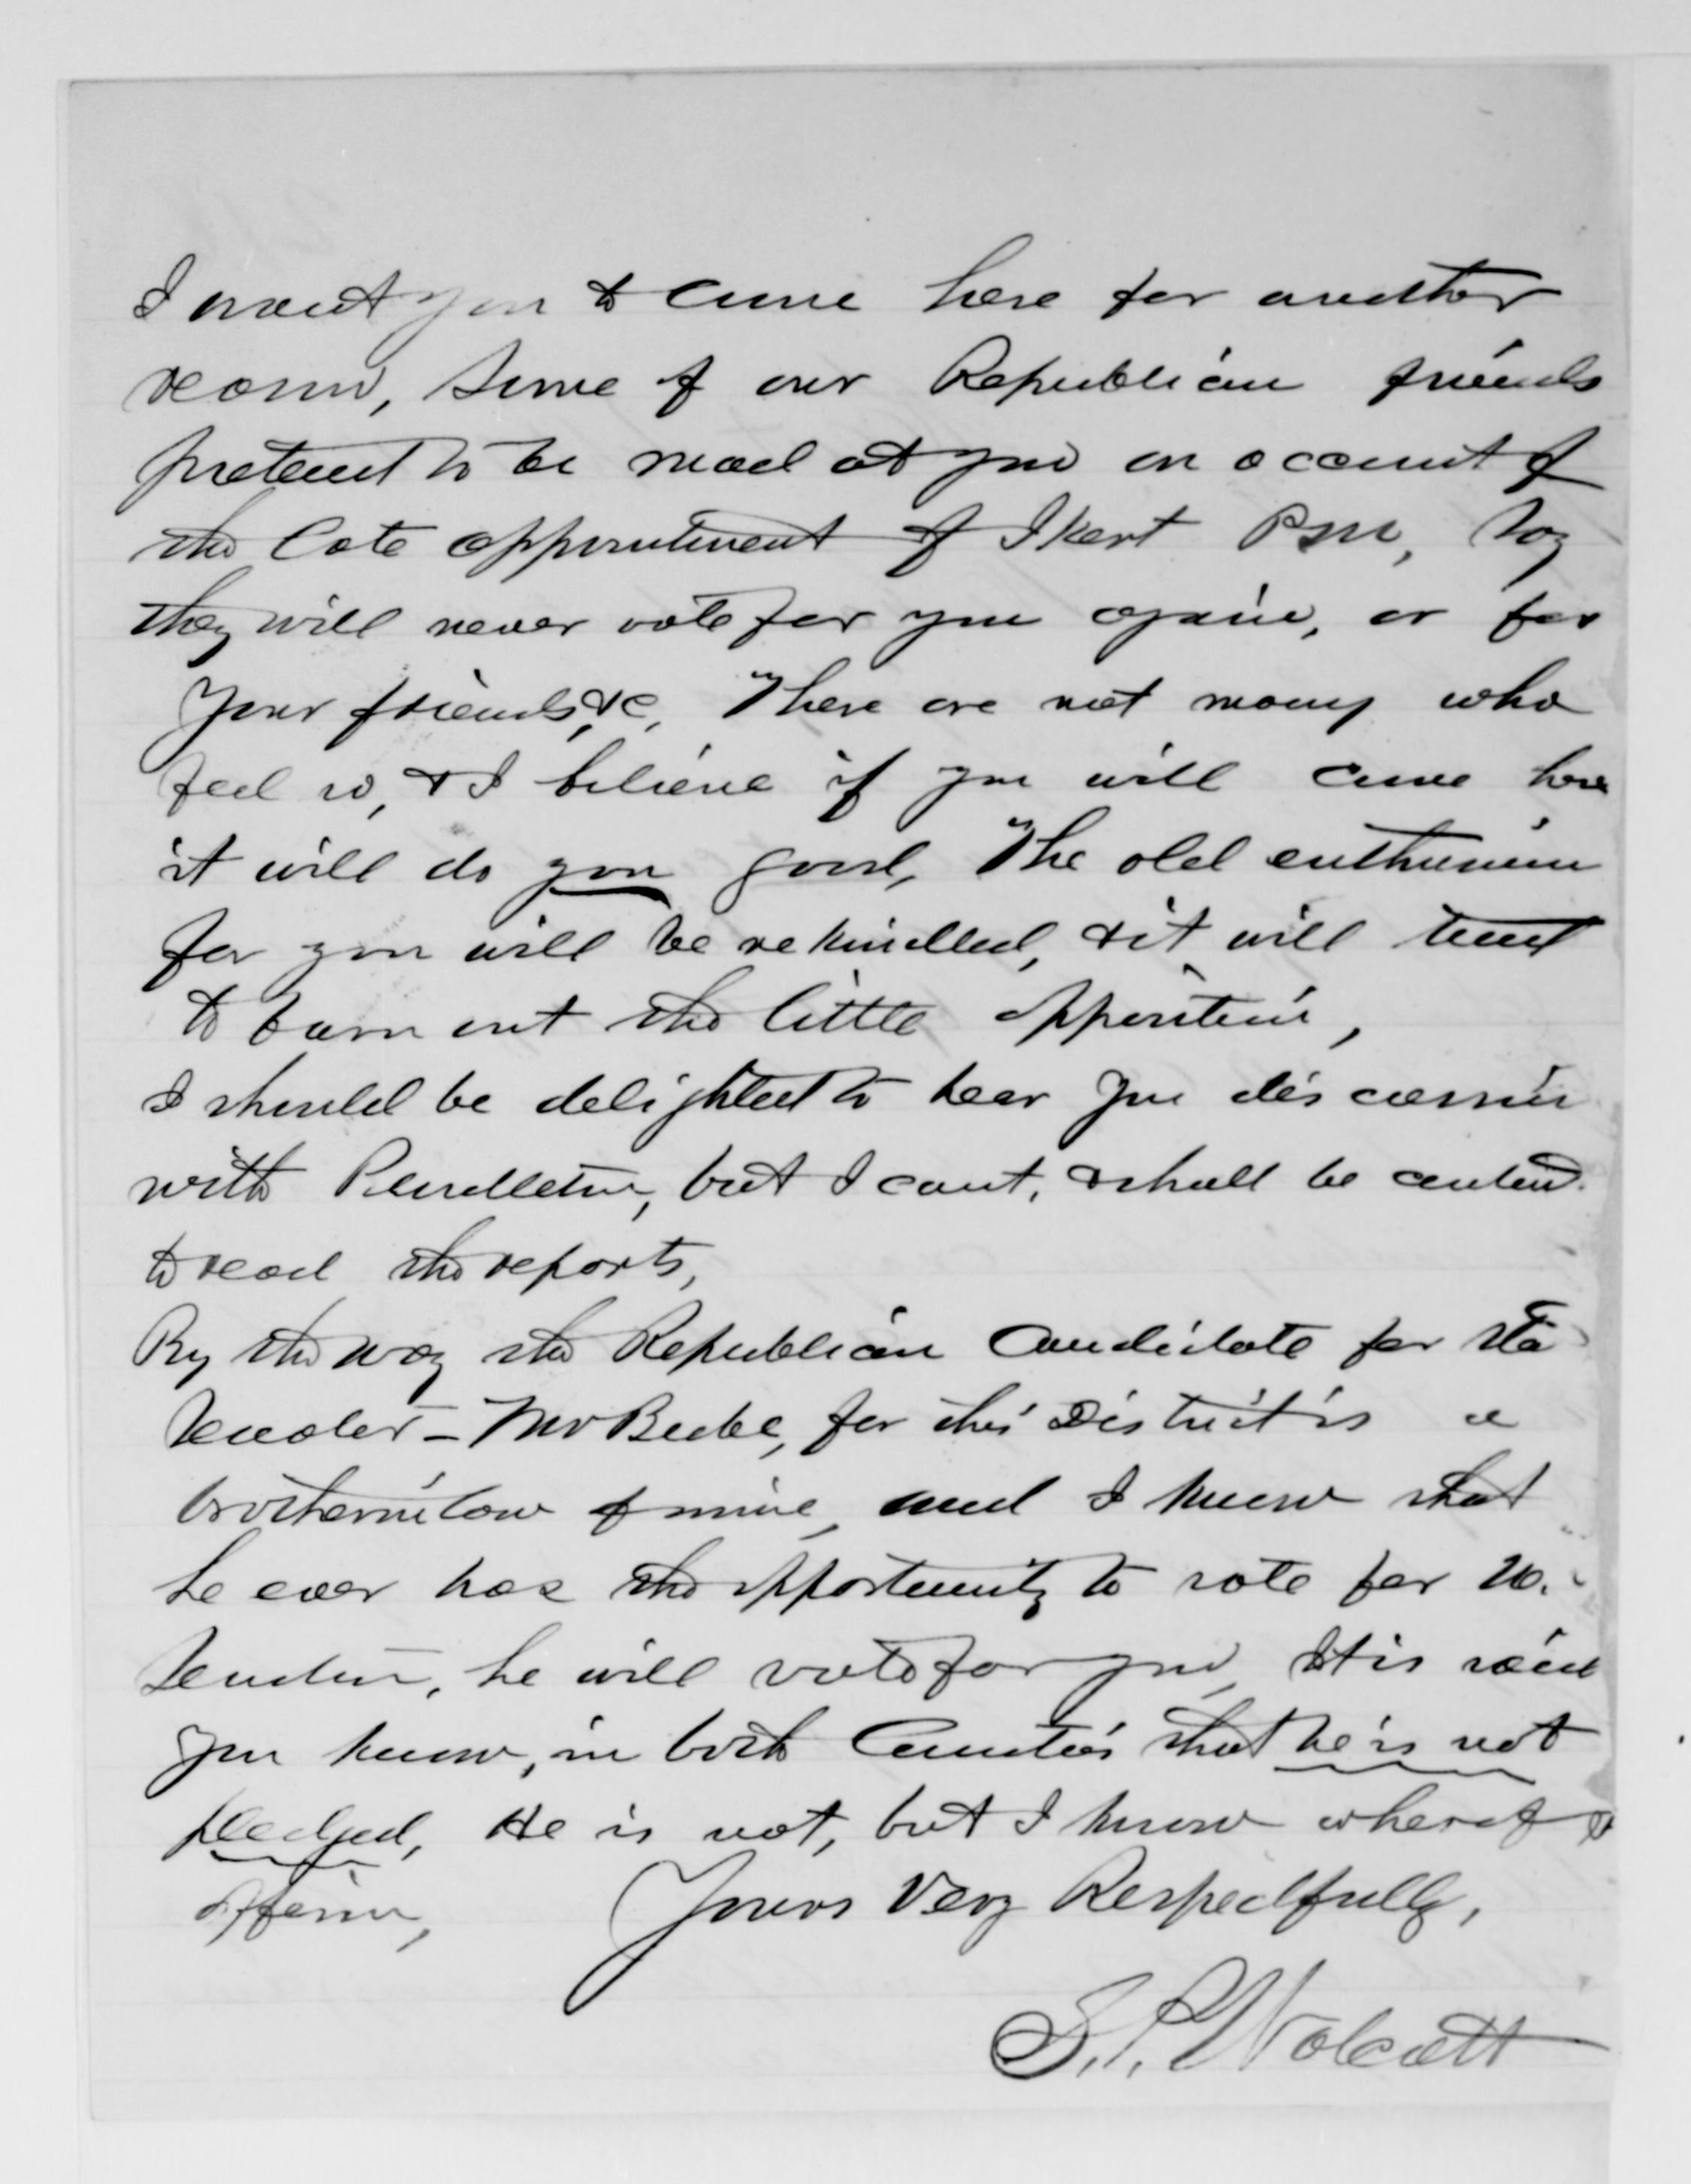 I want you to come here for another
reason, Some of our Republican friends
pretend to be mad at you on account of
the late appointment of Ikert P.M, Say
they will never vote for you again, or for
your friends, &c, There are not many who
feel so, & I believe if you will come here
it will do you good, The old enthusiasm
for you will be rekindled, & it will tend
to burn out the little opposition,
I should be delighted to hear you discussion
with Pendleton, but I cant, & shall be content
to read the reports,
By the way the Republican Candidate for Sta
Senator – Mr Beebe, for this District is a
brotherinlaw of mine, and I know that
he ever has the opportunity to vote for U.
Senator, he will vote for you, It is said
you know, in both Counties that he is not
pledged, He is not, but I know whereof I
affirm, Yours Very Respectfully,
S. P. Wolcott